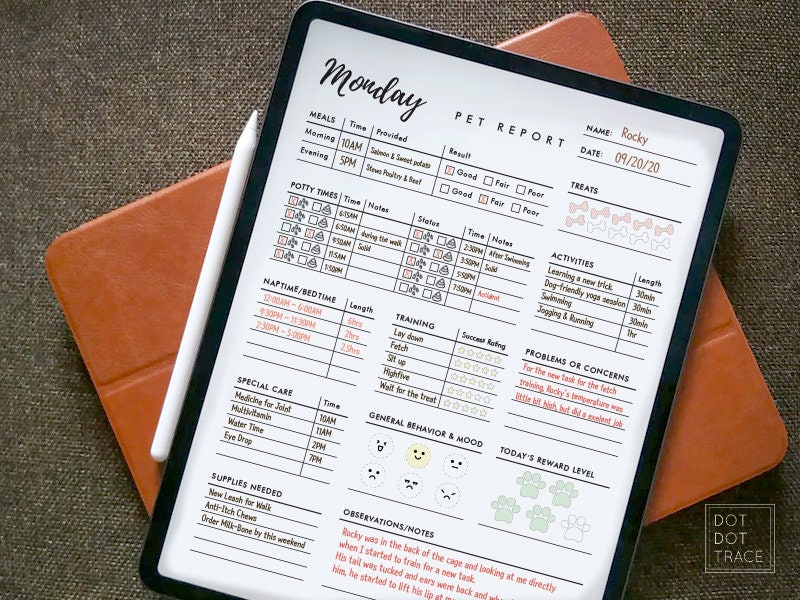 Monday
PET REPORT
NAME: Rocky
DATE: 09/20/20
MEALS Time Provided Result
Morning 10AM Salmon & Sweet potato Good Fair Poor
Evening 5PM Stews Poultry & Beef Good Fair Poor
TREATS
POTTY TIMES Time Notes
6:15AM
6:50AM during the walk
9:50AM Solid
11:5AM
1:50PM
Status Time Notes
2:30PM After Swimming
3:50PM Solid
5:50PM
7:50PM Accident
ACTIVITIES Length
Learning a new trick. 30min
Dog-friendly yoga session 30min
Swimming 30min
Jogging & Running 1hr
NAPTIME/BEDTIME Length
12:00AM ~ 6:00AM 6hrs
9:30PM ~ 11:30PM 2hrs
2:30PM ~ 5:00PM 2.5hrs
TRAINING Success Rating
Lay down
Fetch
Sit up
Highfive
Wait for the treat
PROBLEMS OR CONCERNS
For the new task for the fetch
training, Rocky's temperature was
little bit high, but did a exelent job
SPECIAL CARE Time
Medicine for Joint 10AM
Multivitamin 11AM
Water Time 2PM
Eye Drop 7PM
GENERAL BEHAVIOR & MOOD
TODAY'S REWARD LEVEL
SUPPLIES NEEDED
New Leash for Walk
Anti-Itch Chews
Order Milk-Bone by this weekend
OBSERVATIONS/NOTES
Rocky was in the back of the cage and looking at me directly
when I started to train for a new task.
His tail was tucked and ears were back and
him, he started to lift his lip at
DOT
DOT
TRACE